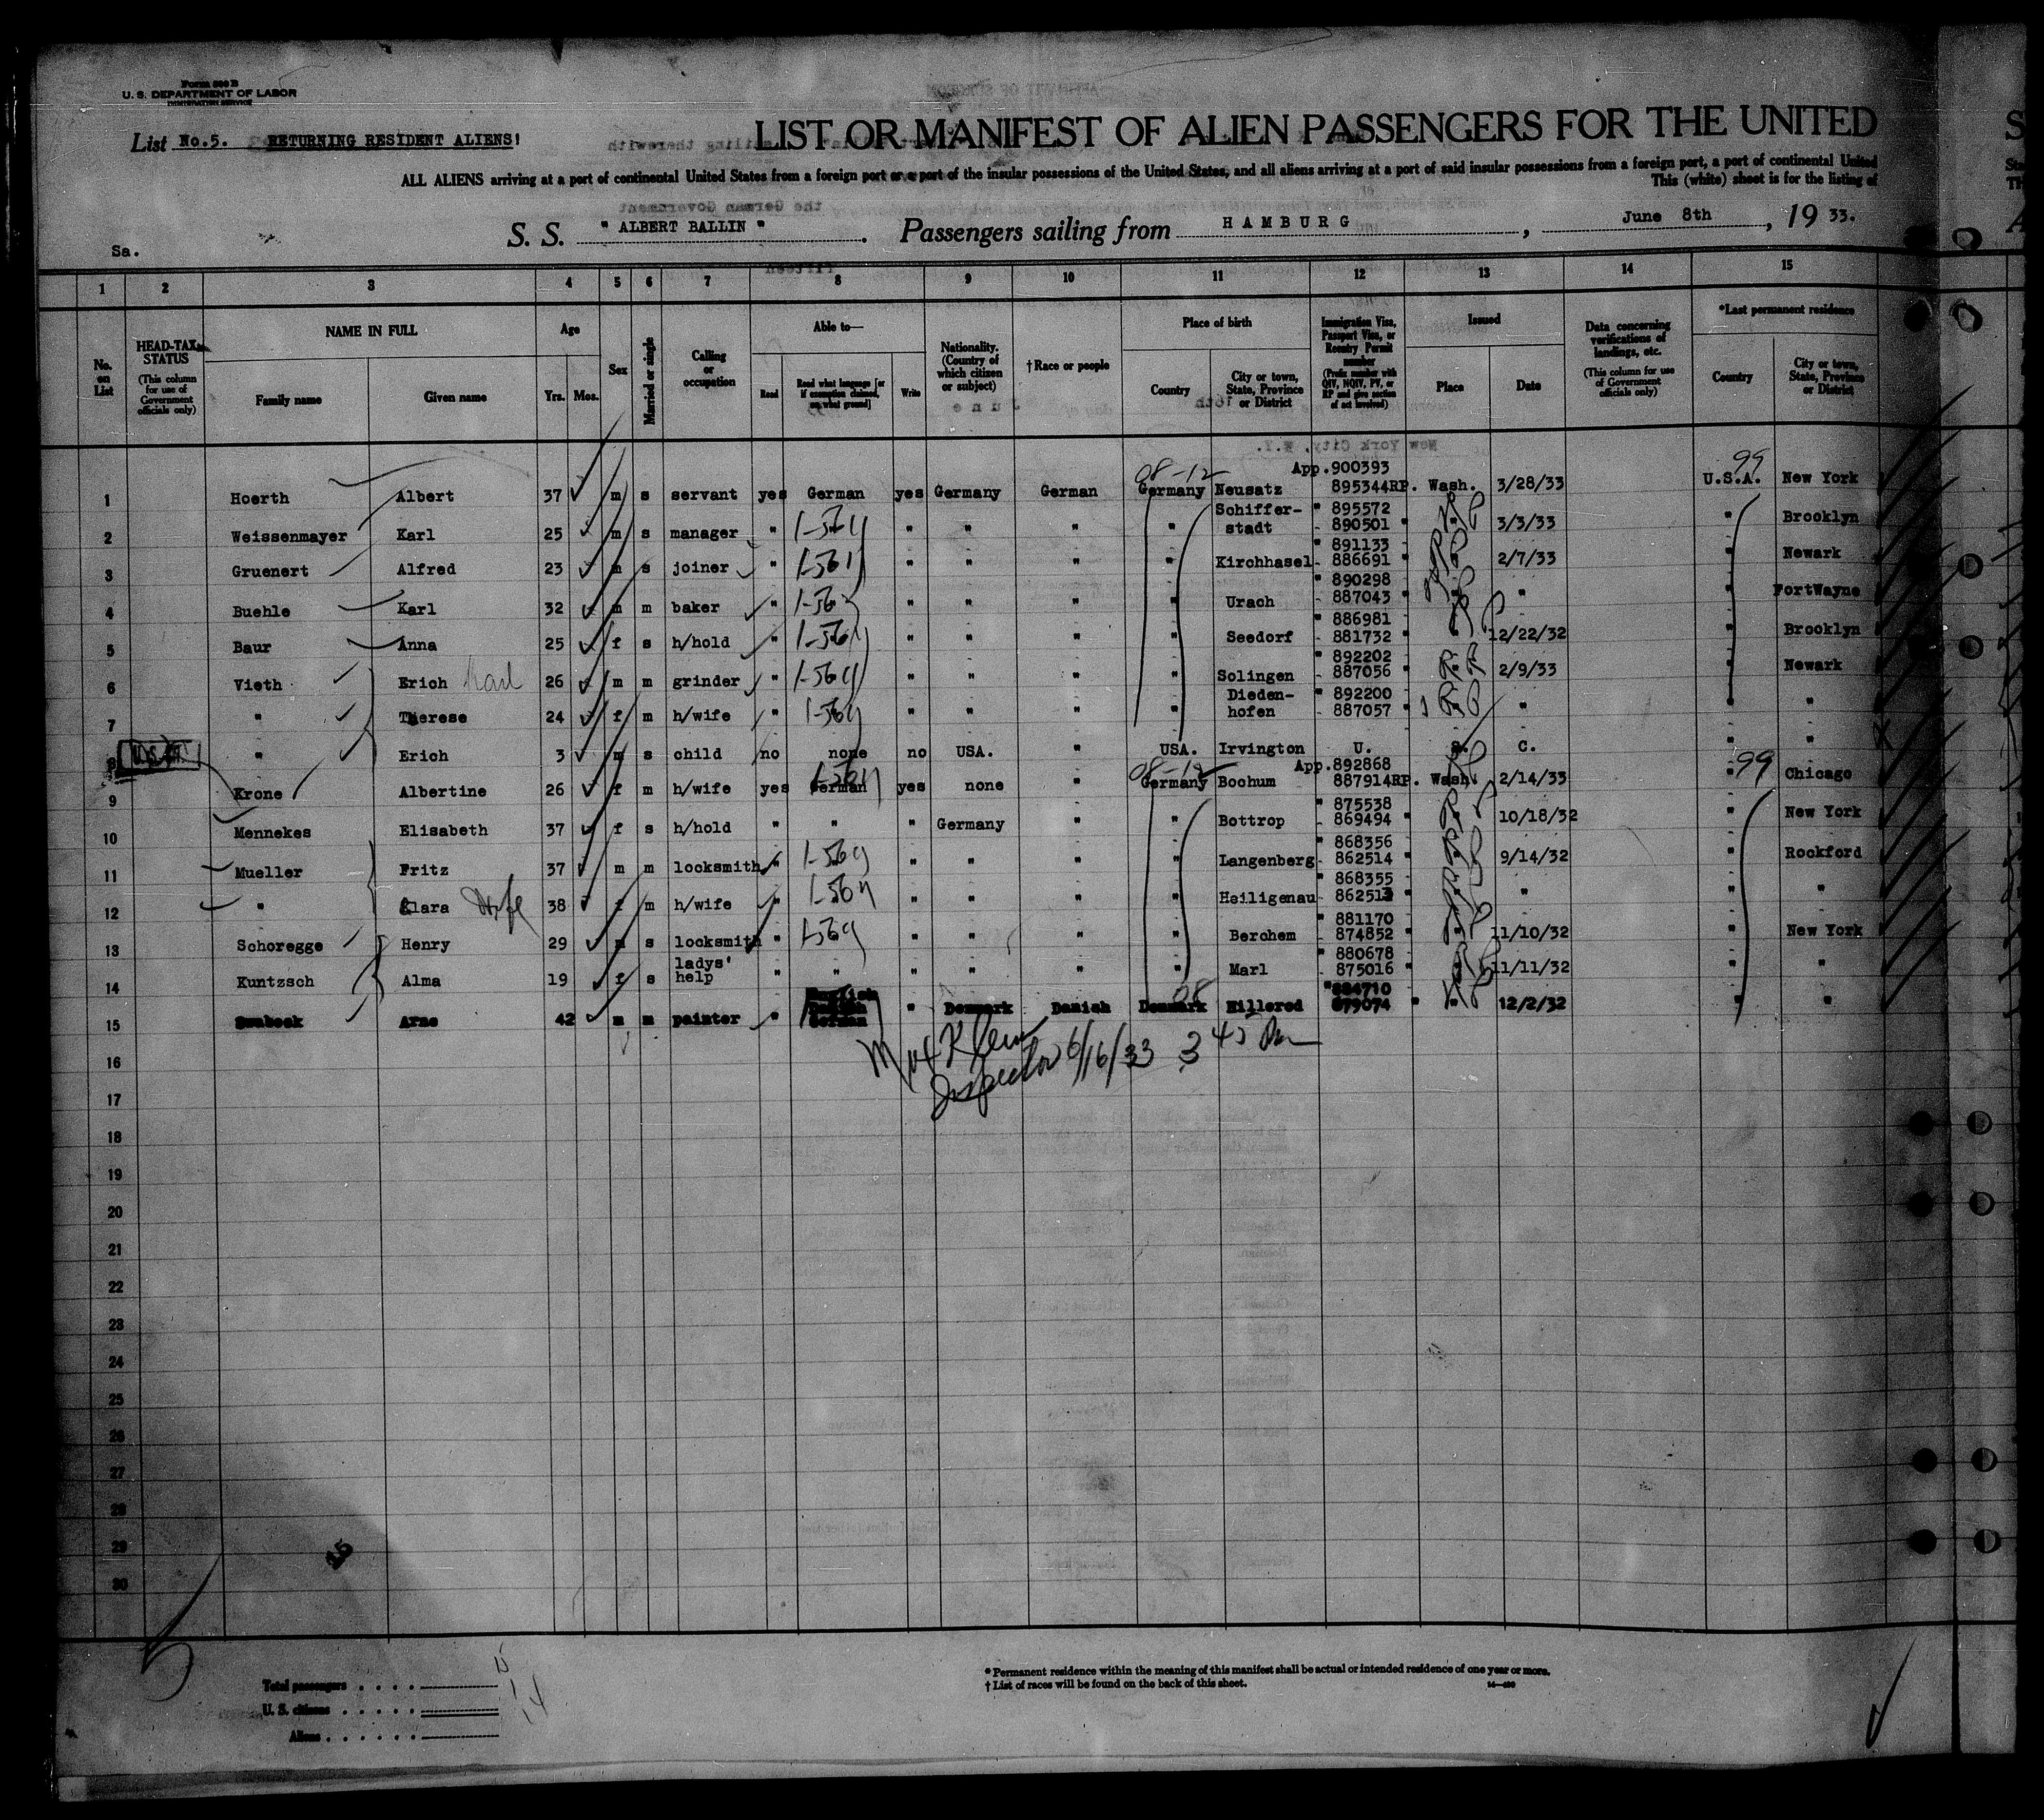 Form 500 B
U. S. DEPARTMENT OF LABOR
IMMIGRATION SERVICE
List No.5. RETURNING RESIDENT ALIENS!
LIST OR MANIFEST OF ALIEN PASSENGERS FOR THE UNITED
ALL ALIENS arriving at a port of continental United States from a foreign port or a port of the insular possessions of the United States, and all aliens arriving at a port of said insular possessions from a foreign port, a port of continental United
This (white) sheet is for the listing of
S. S. " ALBERT BALLIN " . Passengers sailing from HAMBURG , June 8th , 19 33.
Sa.
1 2 3 4 5 6 7 8 9 10 11 12 13 14 15
No. on List
HEAD-TAX STATUS (This column for use of Government officials only)
NAME IN FULL Family name Given name
Age Yrs. Mos.
Sex
Married or single
Calling or occupation
Able to— Read Read what language [or if exemption claimed, on what ground] Write
Nationality. (Country of which citizen or subject)
†Race or people
Place of birth Country City or town, State, Province or District
Immigration Visa, Passport Visa, or Reentry Permit number (Prefix number with QIV, NQIV, PV, or RP and give section of act involved)
Issued Place Date
Data concerning verifications of landings, etc. (This column for use of Government officials only)
*Last permanent residence Country City or town, State, Province or District
08-12 App.900393 99
1 Hoerth Albert 37 m s servant yes German yes Germany German Germany Neusatz 895344RP. Wash. 3/28/33 U.S.A. New York
2 Weissenmayer Karl 25 m s manager " " " " " Schifferstadt " 895572 890501 " " 3/3/33 " Brooklyn
3 Gruenert Alfred 23 m s joiner " " " " " Kirchhasel " 891133 886691 " " 2/7/33 " Newark
4 Buehle Karl 32 m m baker " " " " " Urach " 890298 887043 " " " " FortWayne
5 Baur Anna 25 f s h/hold " " " " " Seedorf " 886981 881732 " " 12/22/32 " Brooklyn
6 Vieth Erich Karl 26 m m grinder " " " " " Solingen " 892202 887056 " " 2/9/33 " Newark
7 " Therese 24 f m h/wife " " " " " Diedenhofen " 892200 887057 " " " " "
8 " Erich 3 m s child no none no USA. " USA. Irvington U. S. C. " "
08-12 App.892868 99
9 Krone Albertine 26 f m h/wife yes German yes none " Germany Bochum 887914RP. Wash. 2/14/33 " Chicago
10 Mennekes Elisabeth 37 f s h/hold " " " Germany " " Bottrop " 875538 869494 " " 10/18/32 " New York
11 Mueller Fritz 37 m m locksmith " " " " " Langenberg " 868356 862514 " " 9/14/32 " Rockford
12 " Clara Wife 38 f m h/wife " " " " " Heiligenau " 868355 862513 " " " " "
13 Schoregge Henry 29 m s locksmith " " " " " Berchem " 881170 874852 " " 11/10/32 " New York
14 Kuntzsch Alma 19 f s ladys' help " " " " " " Marl " 880678 875016 " " 11/11/32 " "
15 Swabeck Arne 42 m m painter " English Danish German " Denmark Danish Denmark Hillerod " 884710 879074 " " 12/2/32 " "
Max Klein
Inspector 6/16/33 3 45 Pm
16
17
18
19
20
21
22
23
24
25
26
27
28
29
30
15
Total passengers
U. S. citizens
Aliens
* Permanent residence within the meaning of this manifest shall be actual or intended residence of one year or more.
† List of races will be found on the back of this sheet.